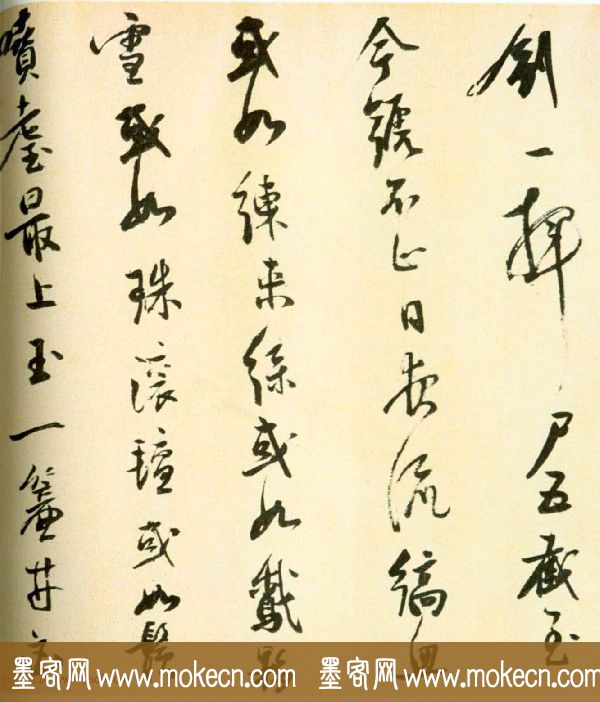 劍一揮尸五截至
今號不止日夜流縞
或如練或如
雪或如珠滾或如
噴臺最上玉一簾井
墨客网 www.mokecn.com 墨客网 www.mokecn.com